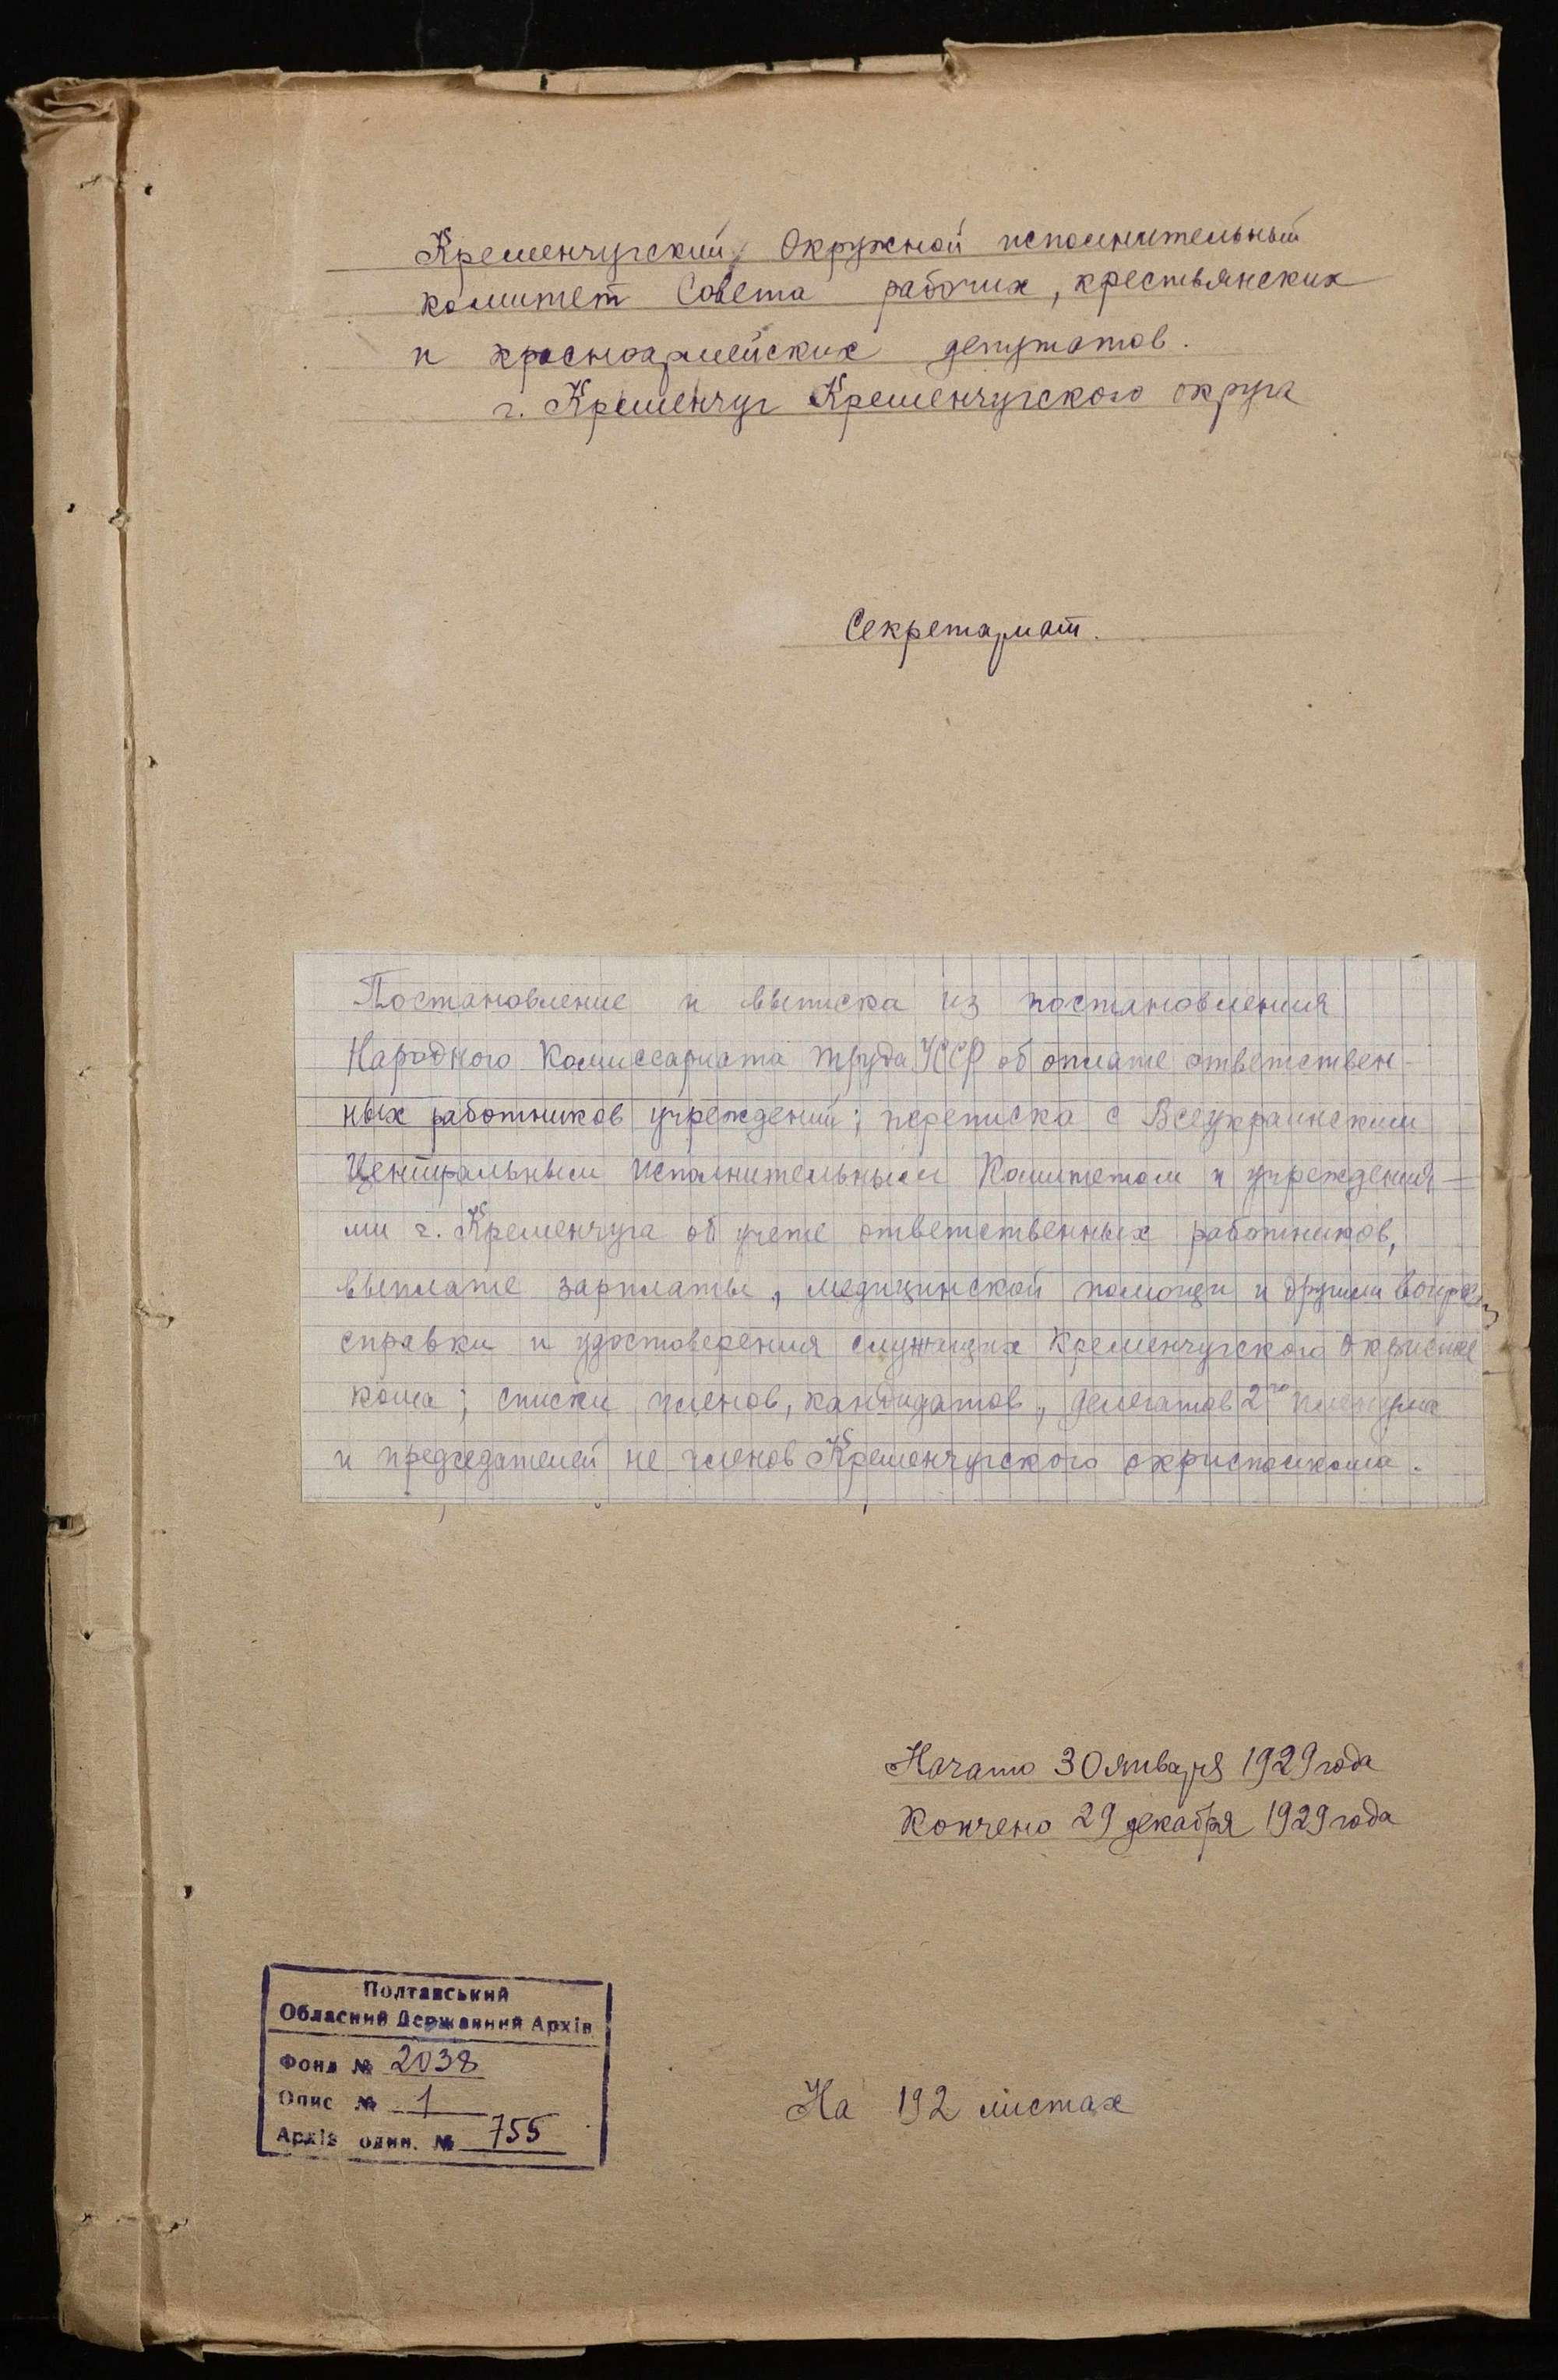 Кременчугский Окружной исполнительный
комитет Совета рабочих, крестьянских
и красноармейских депутатов.
г. Кременчуг Кременчугского округа
Секретариат.
Постановление и выписка из постановления
Народного Комиссариата труда УССР об оплате ответствен-
ных работников учреждений; переписка с Всеукраинским
Центральным Исполнительным Комитетом и учреждения-
ми г. Кременчуга об учете ответственных работников,
выплате зарплаты, медицинской помощи и другим
справки и удостоверения служащих Кременчугского Окриспол
кома; списки членов, кандидатов, делегатов 2го пленума
и председателей не членов Кременчугского окрисполкома.
Начато 30 января 1929 года
Кончено 29 декабря 1929 года
Полтавський
Обласний Державний Архів
Фонд № 2038
Опис № 1
Архів один. № 755
На 192 листах